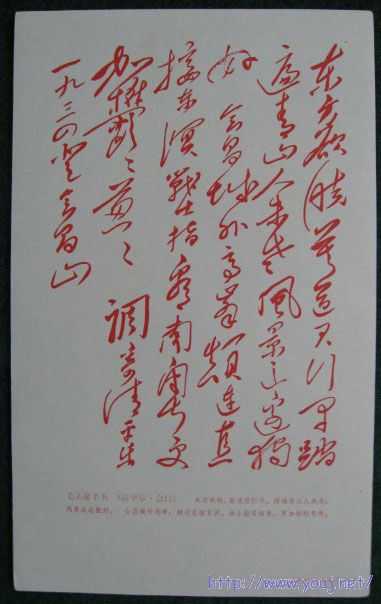 东方欲晓莫道君行早踏
遍青山人未老風景这边独
好 会昌城外高峯顛连直
接东溟戰士指看南粤更
加欝〻葱〻 調寄清平乐
一九三四登会昌山
毛主席手书 《清平乐·会昌》 东方欲晓,莫道君行早。踏遍青山人未老,
风景这边独好。 会昌城外高峰,颠连直接东溟。战士指看南粤,更加郁郁葱葱。
http://www.youj.net/